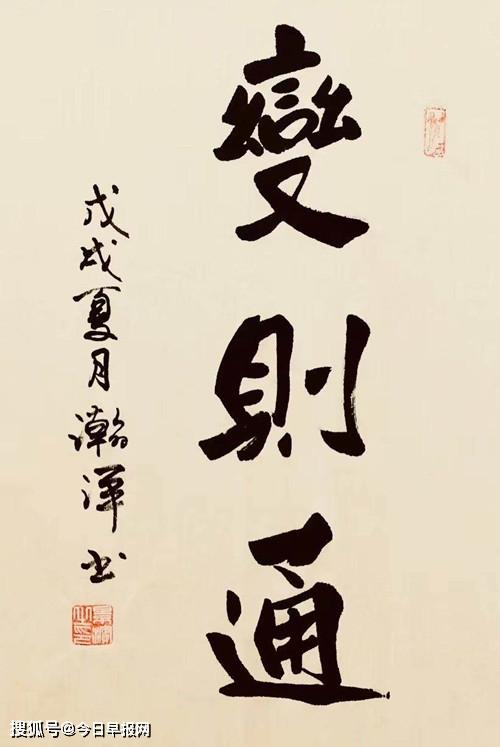 變則通
戊戌夏月瀚澤书
搜狐号@今日早报网